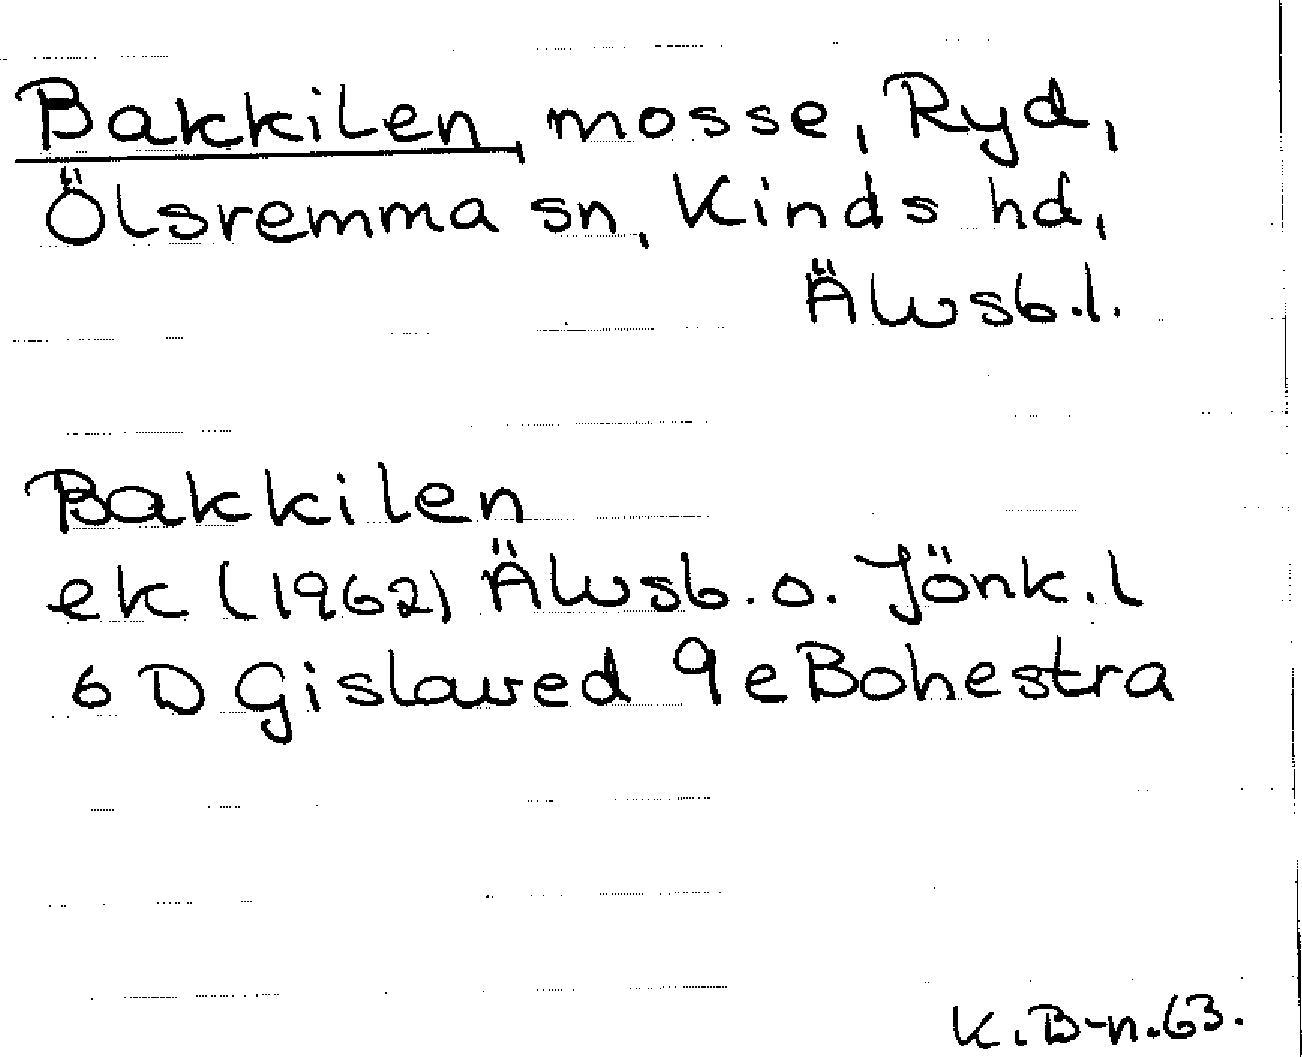 Bakkilen, mosse, Ryd,
Ölsremma sn, Kinds hd,
Älvsb.l.
Bakkilen
ek (1962) Älvsb. o. Jönk.l
6 D Gislaved 9e Bohestra
K.B-n.63.